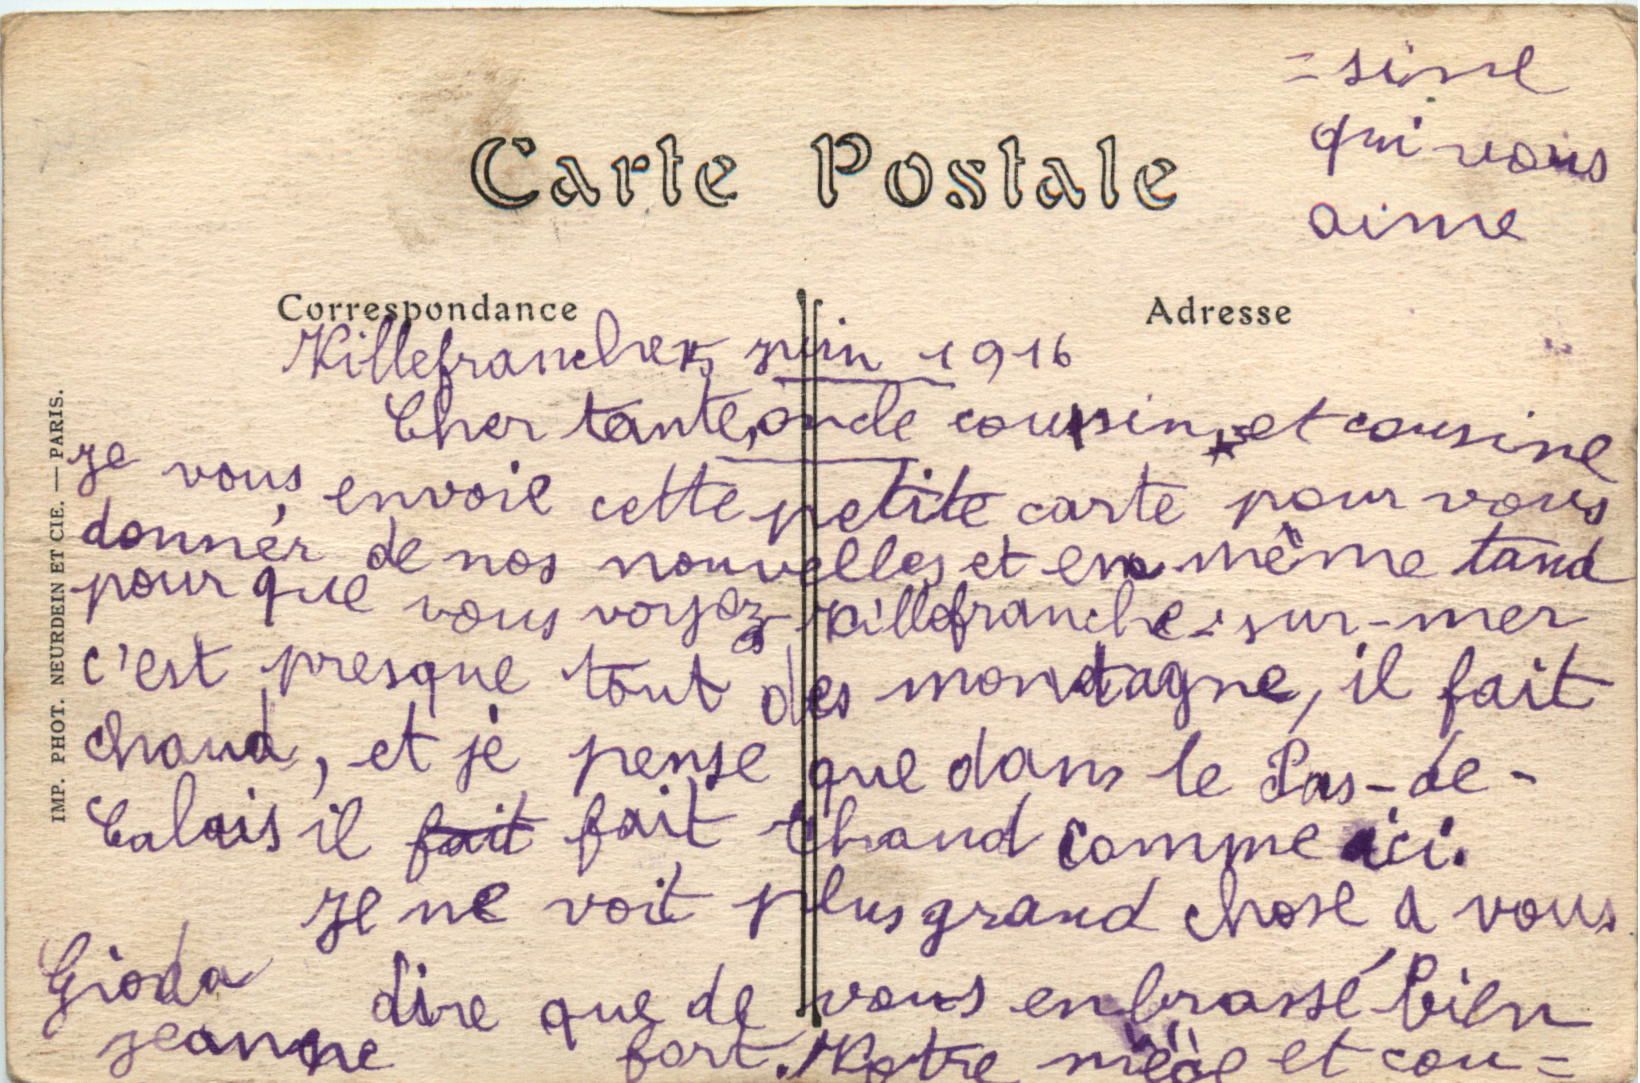 Carte Postale
Correspondance
Adresse
Villefranche, juin 1916
Cher tante, oncle cousin, et cousine
je vous envoie cette petite carte pour vous
donnér de nos nouvelles et en même tand
pour que vous voyez Villefranche-sur-mer
c'est presque tout des montagne, il fait
chaud, et je pense que dans le Pas-de-
Calais il fait fait chaud comme ici.
Je ne voit plus grand chose a vous
dire que de vous enbrassé bien
fort. Votre nièce et cou=
=sine
qui vous
aime
Gioda
jeanne
IMP. PHOT. NEURDEIN ET CIE. — PARIS.